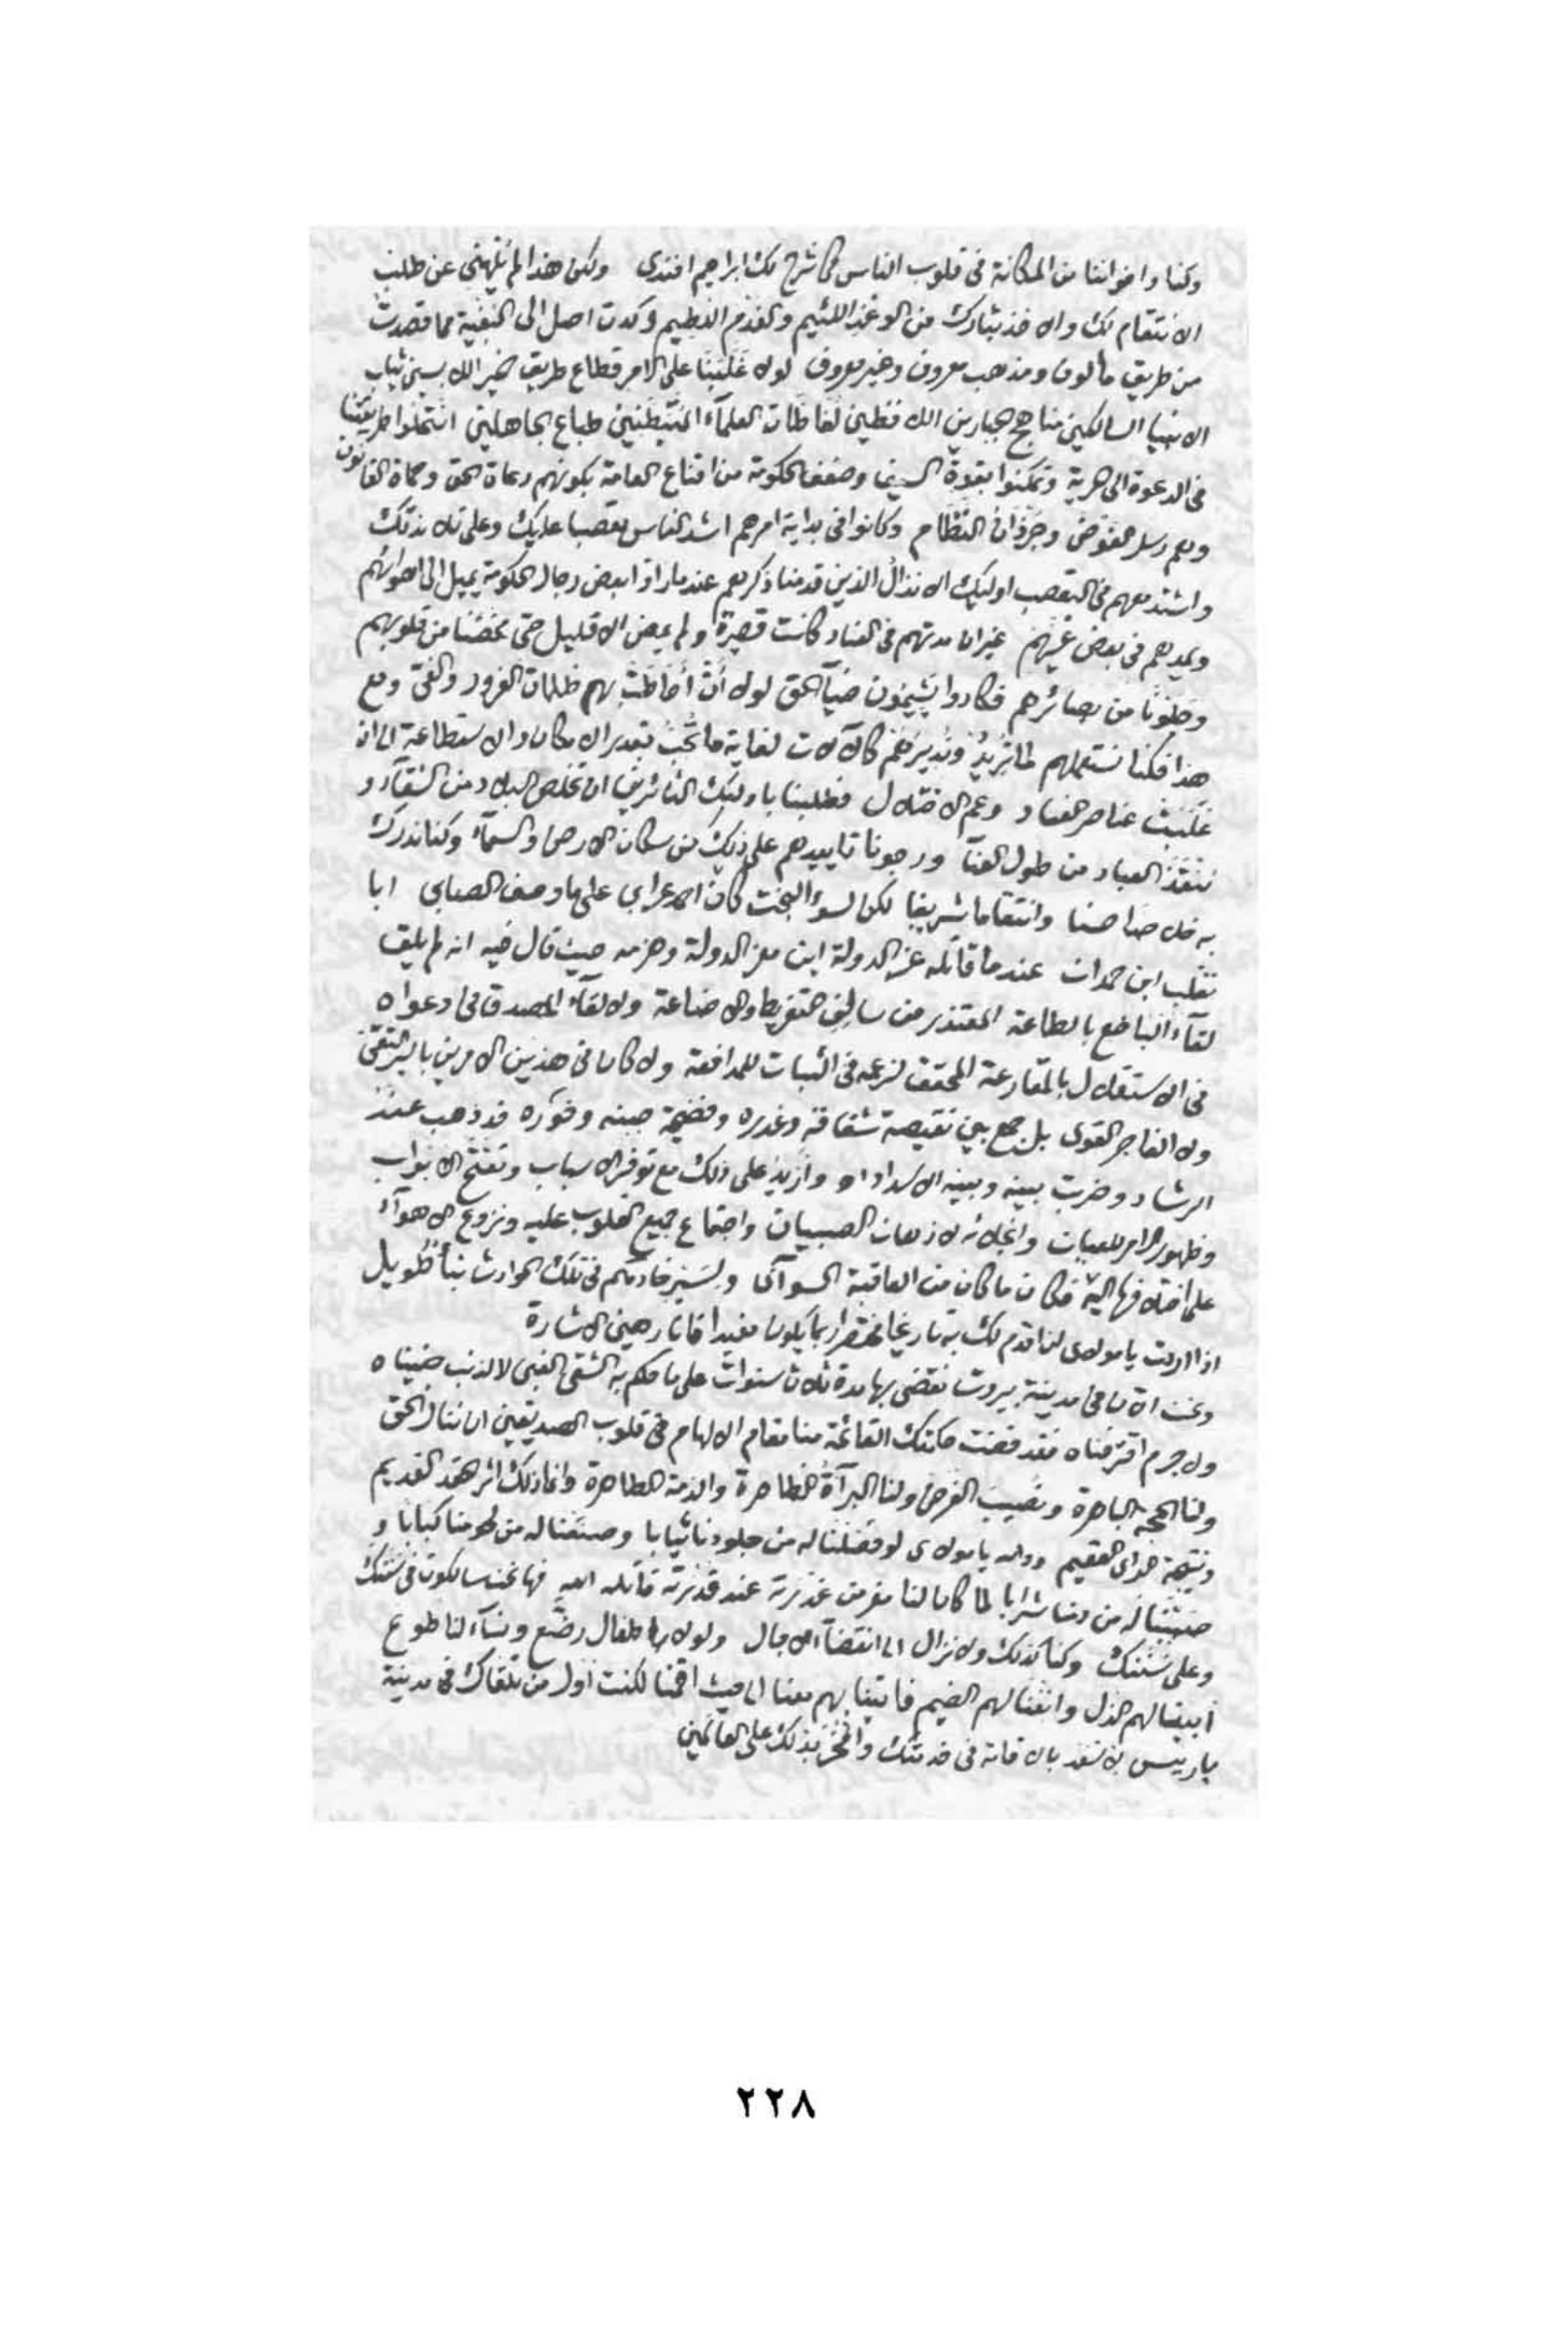 وكنا واخواننا من المكانة في قلوب الناس كما شرح لك ابراهيم افندى ولكن هذا لم يلهني عن طلب
الانتقام لك والاخذ بثارك من الوغد اللئيم والفدم وكدت اصل الى البغية مما قصدت
من طريق مألوف ومذهب معروف وغير معروف لولا غلبنا على الامر قطاع طريق الخير اللابسين ثياب
الانبيا السالكين مناهج الجبارين اللافظين لفاظات العلمآء المتبطنين طباع الجاهلين انتحلوا طريقتنا
فى الدعوة الى الحرية وتمكنوا بقوة السيف وضعف الحكومة من اقناع العامة بكونهم دعاة الحق وحماة القانون
وهم رسل الفوضى النظام وكانوا فى بداية امرهم اشد الناس تعصبا عليك وعلى تلامذتك
واشتد معهم فى التعصب اوليك الانذال الذين قدمنا ذكرهم عندما راوا بعض رجال الحكومة يميل الى اهوائهم
ويمدهم فى بعض غيهم غير ان مدتهم فى العناد كانت قصيرة ولم يمض الا قليل حتى من قلوبهم
من بصائرهم فكادوا يشيمون ضيآ الحق لولا ان أحاطت بهم ظلمات الغرور والغى ومع
هذا فكنا نستعملهم لما نريد ونديرهم كالآلات لغاية ما نحب بقدر الامكان والاستطاعة الى ان
غلبت عناصر الفساد وعم الاختلال فطلبنا باوليك الثائرين ان نخلص البلاد من الشقآء و
ننقذ العباد من طول العنآ ورجونا تاييدهم على ذلك من سكان الارض والسمآء وكنا ندرك
به خلاصا حسنا وانتقاما شريفا لكن لسوء البخت كان احمد عرابي على ما وصف الصابي ابا
تغلب ابن حمدان عندما قاتله عز الدولة ابن معز الدولة وهزمه حيث قال فيه انه لم يلق
لقآء الباخع بالطاعة المعتذر من سالف التفريط والاضاعة ولا لقآء المصدق فى دعواه
فى الاستقلال بالمقارعة المحقق لزعمه فى الثبات للمدافعة ولا كان فى هذين الامرين بالبر التقى
ولا الفاجر القوى بل جمع بين نقيصة شقاقه وغدره وفضيحة جبنه وخوره قد ذهب عنه
الرشاد وضربت بينه وبينه الاسداد اه وازيد على ذلك مع توفر الاسباب وتفتح الابواب
وظهور الامر للعيان وانجلائه لاذهان الصبيان واجتماع جميع القلوب عليه ونزوع الاهوآء
على اختلافها اليه فكان ما كان من العاقبة السوآى فى تلك الحوادث نبأ طويل
اذا اردت يا مولاى ان اقدم لك به تاريخا مختصرا ربما يكون مفيدا فانا رهين الاشارة
ونحن الآن فى مدينة بيروت نقضى بها مدة ثلاث سنوات على ما حكم به الشقى الغبى لا لذنب جنيناه
ولا جرم اقترفناه فقد قضت حكمتك القائمة منا مقام الالهام فى قلوب الصديقين ان ننال الحق
ولنا الحجة الباهرة ونصيب الغرض ولنا البرآءة الظاهرة والذمة الطاهرة وانما ذلك اثر الحقد القديم
ونتيجة الراى العقيم ووالله يا مولاى لو فصلنا له من جلودنا ثيابا وصنعنا له من لحومنا كبابا و
له من دمنا شرابا لما كان لنا مفر من غدرته عند قدرته قاتله الله فها نحن سالكون فى سننك
وعلى سنتك وكنا كذلك ولا نزال الى انقضآء الاجال ولولا اطفال رضع ونسآء لنا طوع
أبينا لهم الذل وانفنا لهم الضيم فاتينا بهم معنا الى حيث اقمنا لكنت أول من تلقاك فى مدينة
باريس لاسعد بالاقامة فى خدمتك وافخر بذلك على العالمين
٢٢٨